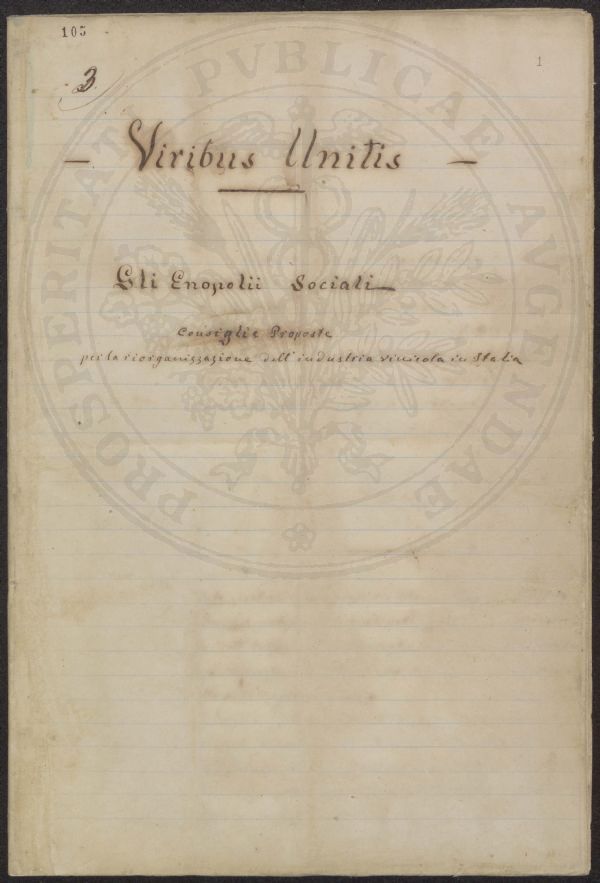 105
1
3
— Viribus Unitis —
Gli Enopolii Sociali
Consigli e Proposte
per la riorganizzazione dell'industria vinicola in Italia
PROSPERITATI PVBLICAE AVGENDAE